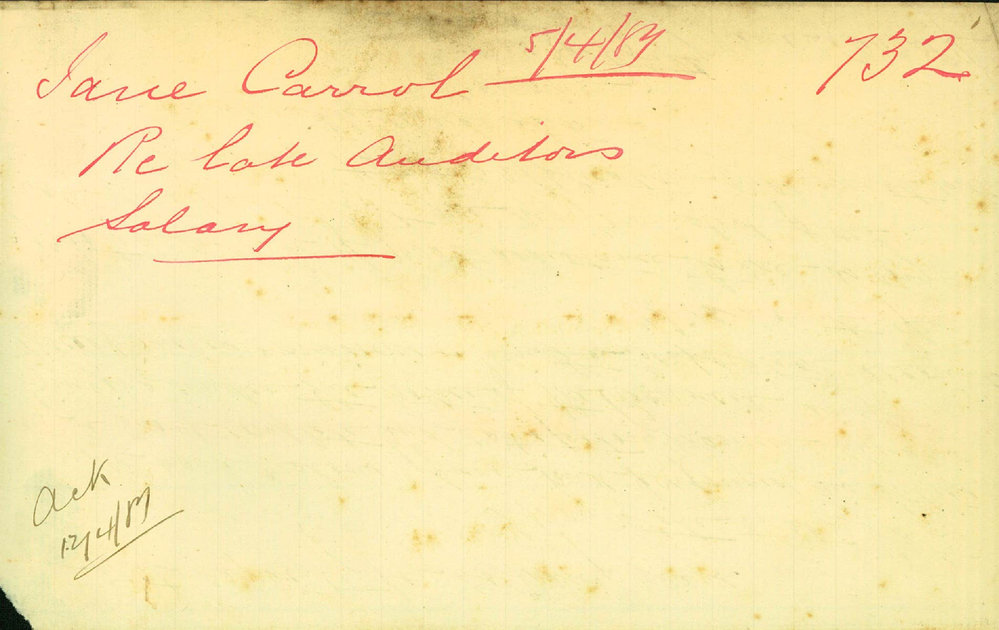 Jane Carrol 5/4/87 732
Re late Auditors
Salary
Ack
12/4/87